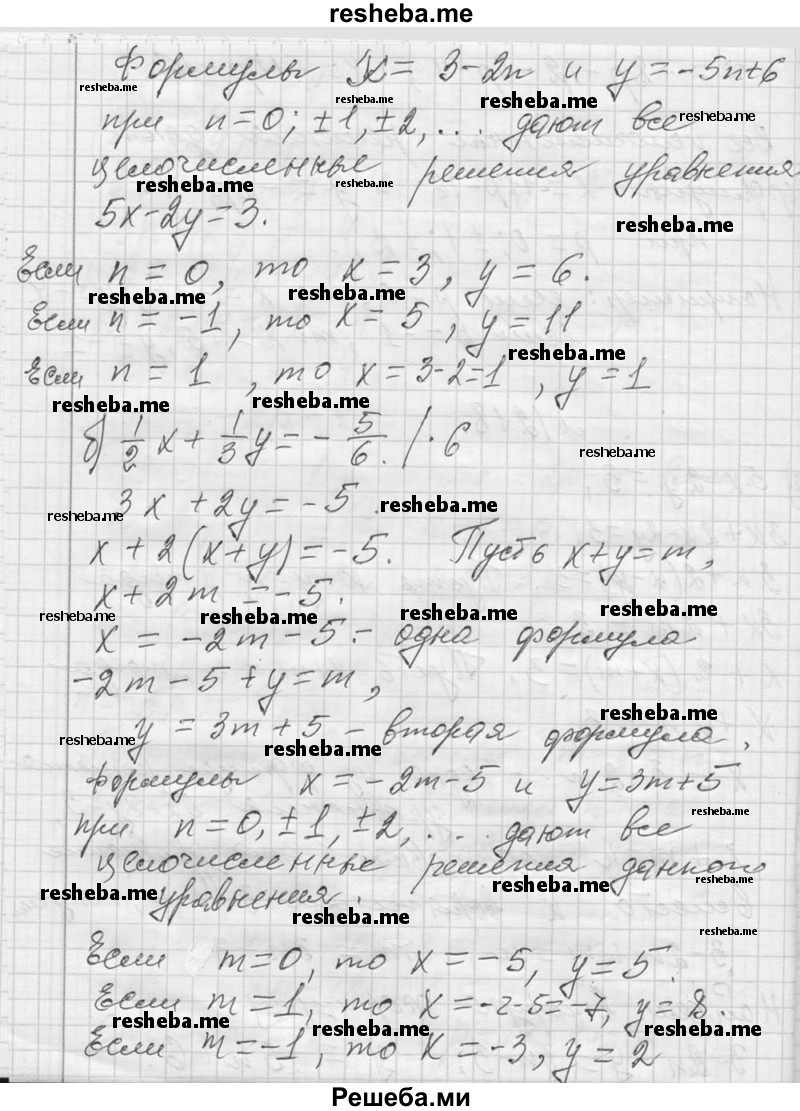 resheba.me
Формулы x = 3-2n и y = -5n+6
resheba.me resheba.me resheba.me resheba.me
при n=0; ±1, ±2, ... дают все
целочисленные решения уравнения
resheba.me resheba.me
5x-2y=3. resheba.me
Если n = 0, то x = 3, y = 6.
resheba.me resheba.me
Если n = -1, то x = 5, y = 11
resheba.me
Если n = 1, то x = 3-2=1, y = 1
resheba.me resheba.me
б) 1/2 x + 1/3 y = - 5/6. | · 6
resheba.me
3x + 2y = -5.
resheba.me resheba.me
x + 2(x+y) = -5. Пусть x+y=m,
x + 2m = -5.
resheba.me resheba.me resheba.me resheba.me
x = -2m - 5 - одна формула
-2m - 5 + y = m,
resheba.me
y = 3m + 5 - вторая формула,
resheba.me resheba.me
формулы x = -2m-5 и y=3m+5
resheba.me
при n=0, ±1, ±2, ... дают все
целочисленные решения данного
resheba.me resheba.me resheba.me
уравнения.
resheba.me
resheba.me
Если m=0, то x = -5, y = 5.
Если m = 1, то x = -2-5=-7, y = 8.
resheba.me resheba.me resheba.me
Если m = -1, то x = -3, y = 2
Решеба.ми